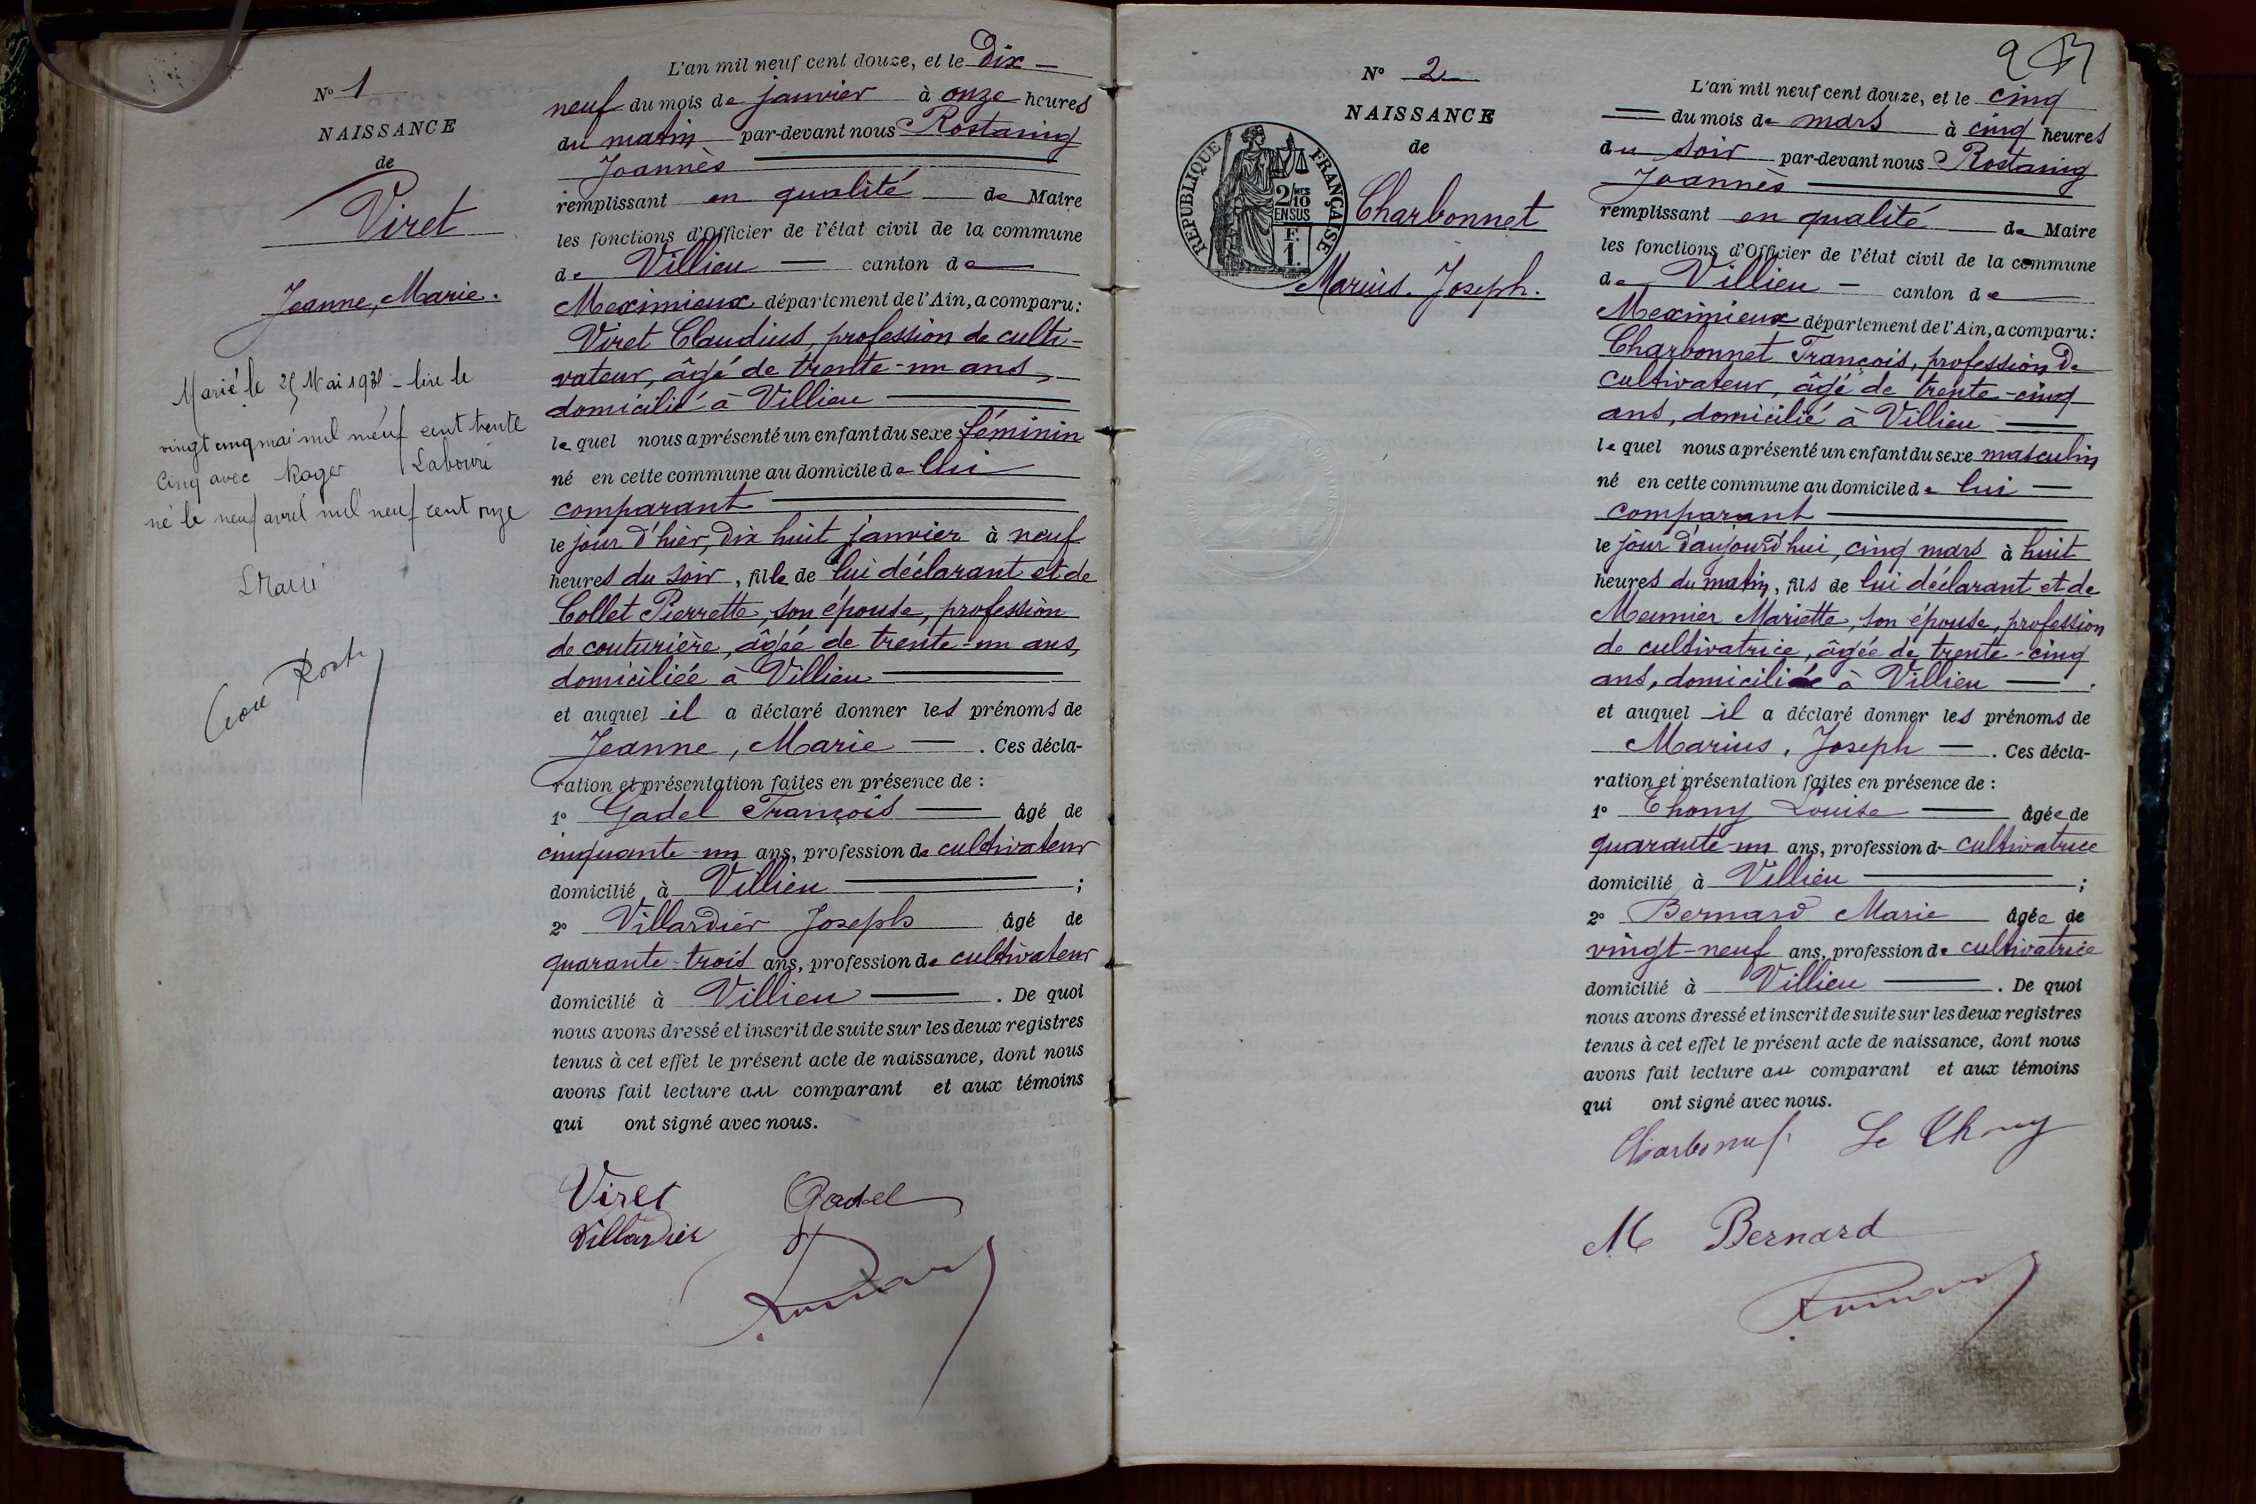 N° 1
NAISSANCE
de
Viret
Jeanne, Marie.
Marié le 25 Mai 1931 - lire le
vingt cinq mai mil neuf cent trente
Cinq avec Roger Labouri
né le neuf avril mil neuf cent onze
L'an mil neuf cent douze, et le Dix-
neuf du mois de janvier à onze heures
du matin par-devant nous Rostaing
Joannès
remplissant en qualité de Maire
les fonctions d'Officier de l'état civil de la commune
de Villieu canton de
Meximieux département de l'Ain, a comparu:
Viret Claudius, profession de culti-
vateur, âgé de trente-un ans,
domicilié à Villieu
lequel nous a présenté un enfant du sexe féminin
né en cette commune au domicile de lui
comparant
le jour d'hier, Dix huit janvier à neuf
heures du soir, fille de lui déclarant et de
Collet Pierrette, son épouse, profession
de couturière, âgée de trente-un ans,
domiciliée à Villieu
et auquel il a déclaré donner les prénoms de
Jeanne, Marie. Ces décla-
ration et présentation faites en présence de :
1° Gadel François âgé de
cinquante-un ans, profession de cultivateur
domicilié à Villieu ;
2° Villardier Joseph âgé de
quarante-trois ans, profession de cultivateur
domicilié à Villieu. De quoi
nous avons dressé et inscrit de suite sur les deux registres
tenus à cet effet le présent acte de naissance, dont nous
avons fait lecture au comparant et aux témoins
qui ont signé avec nous.
Viret Gadel
Villardier
N° 2
NAISSANCE
de
REPUBLIQUE FRANÇAISE
2/10 MES
EN SUS
F.
1.
Charbonnet
Marius. Joseph.
L'an mil neuf cent douze, et le cinq
du mois de mars à cinq heures
du soir par-devant nous Rostaing
Joannès
remplissant en qualité de Maire
les fonctions d'Officier de l'état civil de la commune
de Villieu - canton de
Meximieux département de l'Ain, a comparu:
Charbonnet François, profession de
cultivateur, âgé de trente-cinq
ans, domicilié à Villieu
lequel nous a présenté un enfant du sexe masculin
né en cette commune au domicile de lui
comparant
le jour d'aujourd'hui, cinq mars à huit
heures du matin, fils de lui déclarant et de
Meunier Mariette, son épouse, profession
de cultivatrice, âgée de trente-cinq
ans, domiciliée à Villieu.
et auquel il a déclaré donner les prénoms de
Marius, Joseph. Ces décla-
ration et présentation faites en présence de :
1° Thony Louise âgée de
quarante-un ans, profession de cultivatrice
domicilié à Villieu ;
2° Bernard Marie âgée de
vingt-neuf ans, profession de cultivatrice
domicilié à Villieu. De quoi
nous avons dressé et inscrit de suite sur les deux registres
tenus à cet effet le présent acte de naissance, dont nous
avons fait lecture au comparant et aux témoins
qui ont signé avec nous.
M Bernard